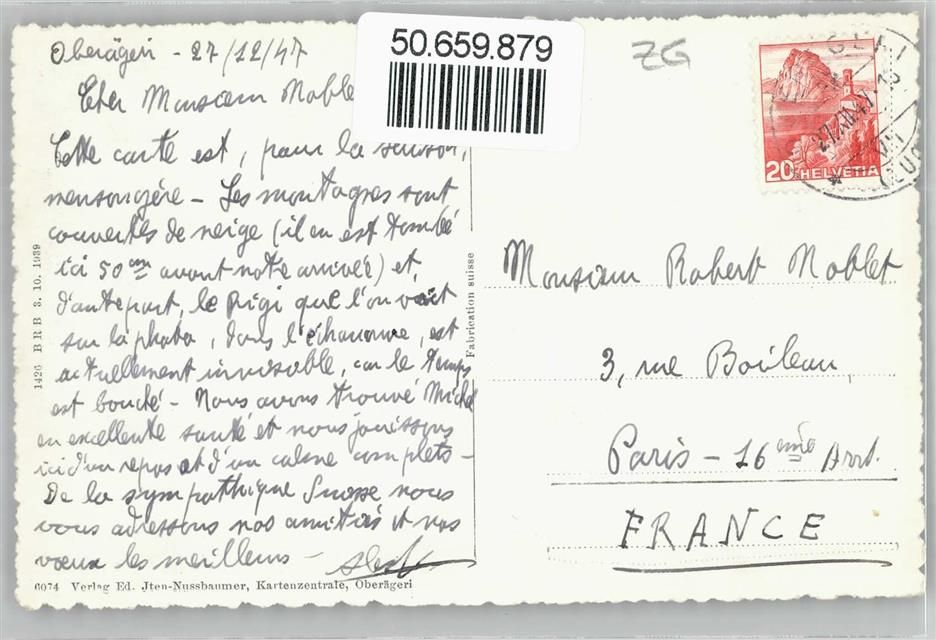 Oberägeri - 27/12/47
Cher Monsieur Noble
Cette carte est, pour la saison,
mensongère - Les montagnes sont
couvertes de neige (il en est tombé
ici 50 cm avant notre arrivée) et,
d'autre part, le Rigi que l'on voit
sur la photo, dans l'échancrure, est
actuellement invisible, car le temps
est bouché - Nous avons trouvé Michel
en excellente santé et nous jouissons
ici d'un repos et d'un calme complets -
De la sympathique Suisse nous
vous adressons nos amitiés et nos
voeux les meilleurs -
6074 Verlag Ed. Jten-Nussbaumer, Kartenzentrale, Oberägeri
1426 BRB 3. 10. 1939
Fabrication suisse
50.659.879
ZG
20 HELVETIA
27.XII.47
Monsieur Robert Noblet
3, rue Boileau,
Paris - 16ème Arrt.
FRANCE